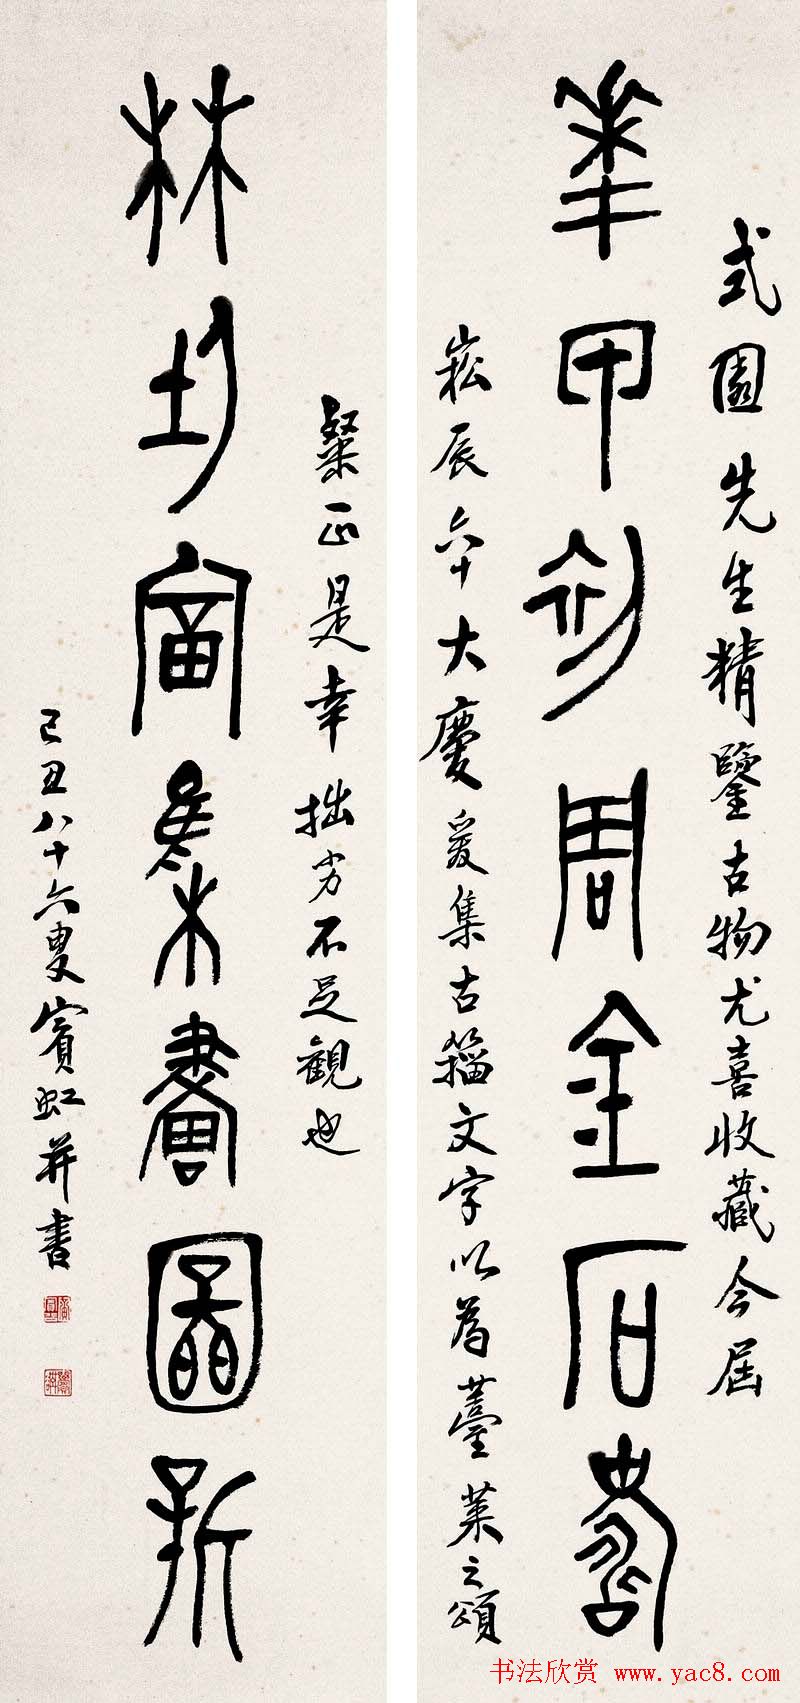 式園先生精鑒古物尤喜收藏今屆
華甲初周金石壽
崧辰六十大慶爰集古籀文字以為薹萊之頌
粲正是幸拙劣不足觀也
林均富集畫圖新
己丑八十六叟賓虹并書
书法欣赏 www.yac8.com